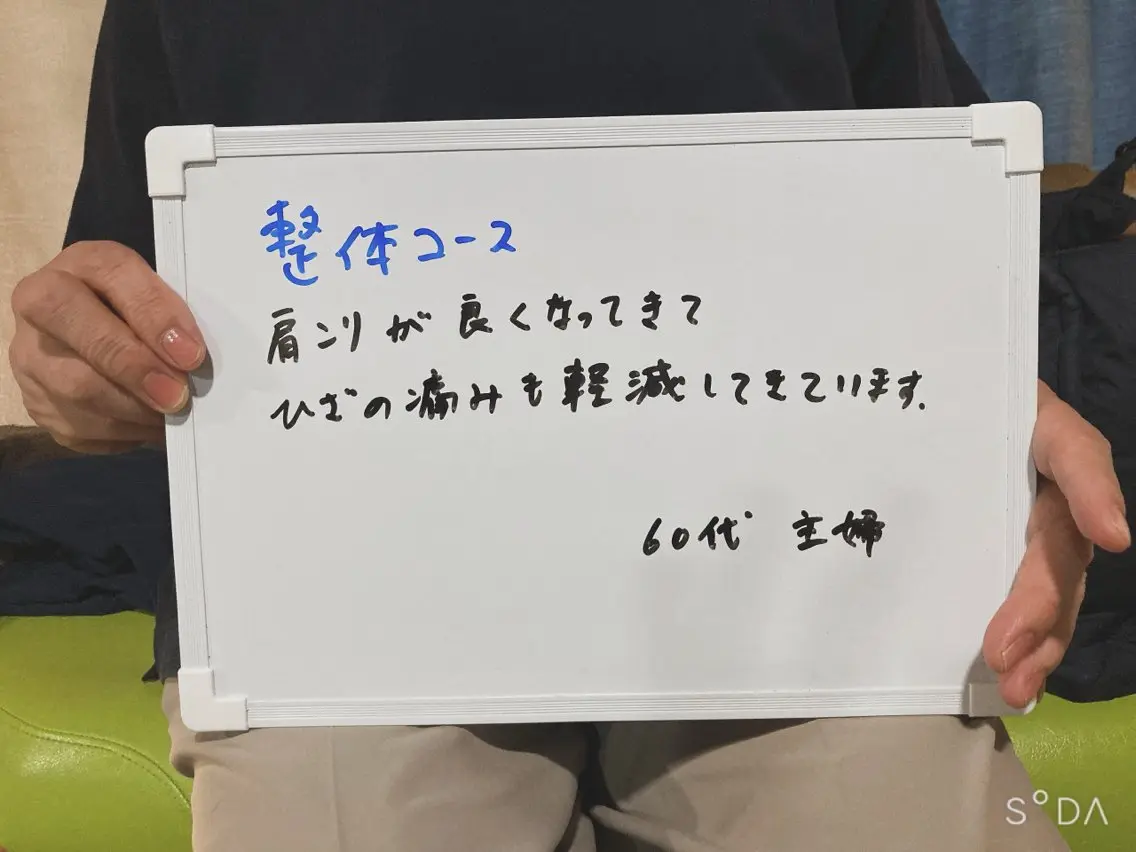 整体コース
肩こりが良くなってきて
ひざの痛みも軽減してきています.
60代 主婦
SODA